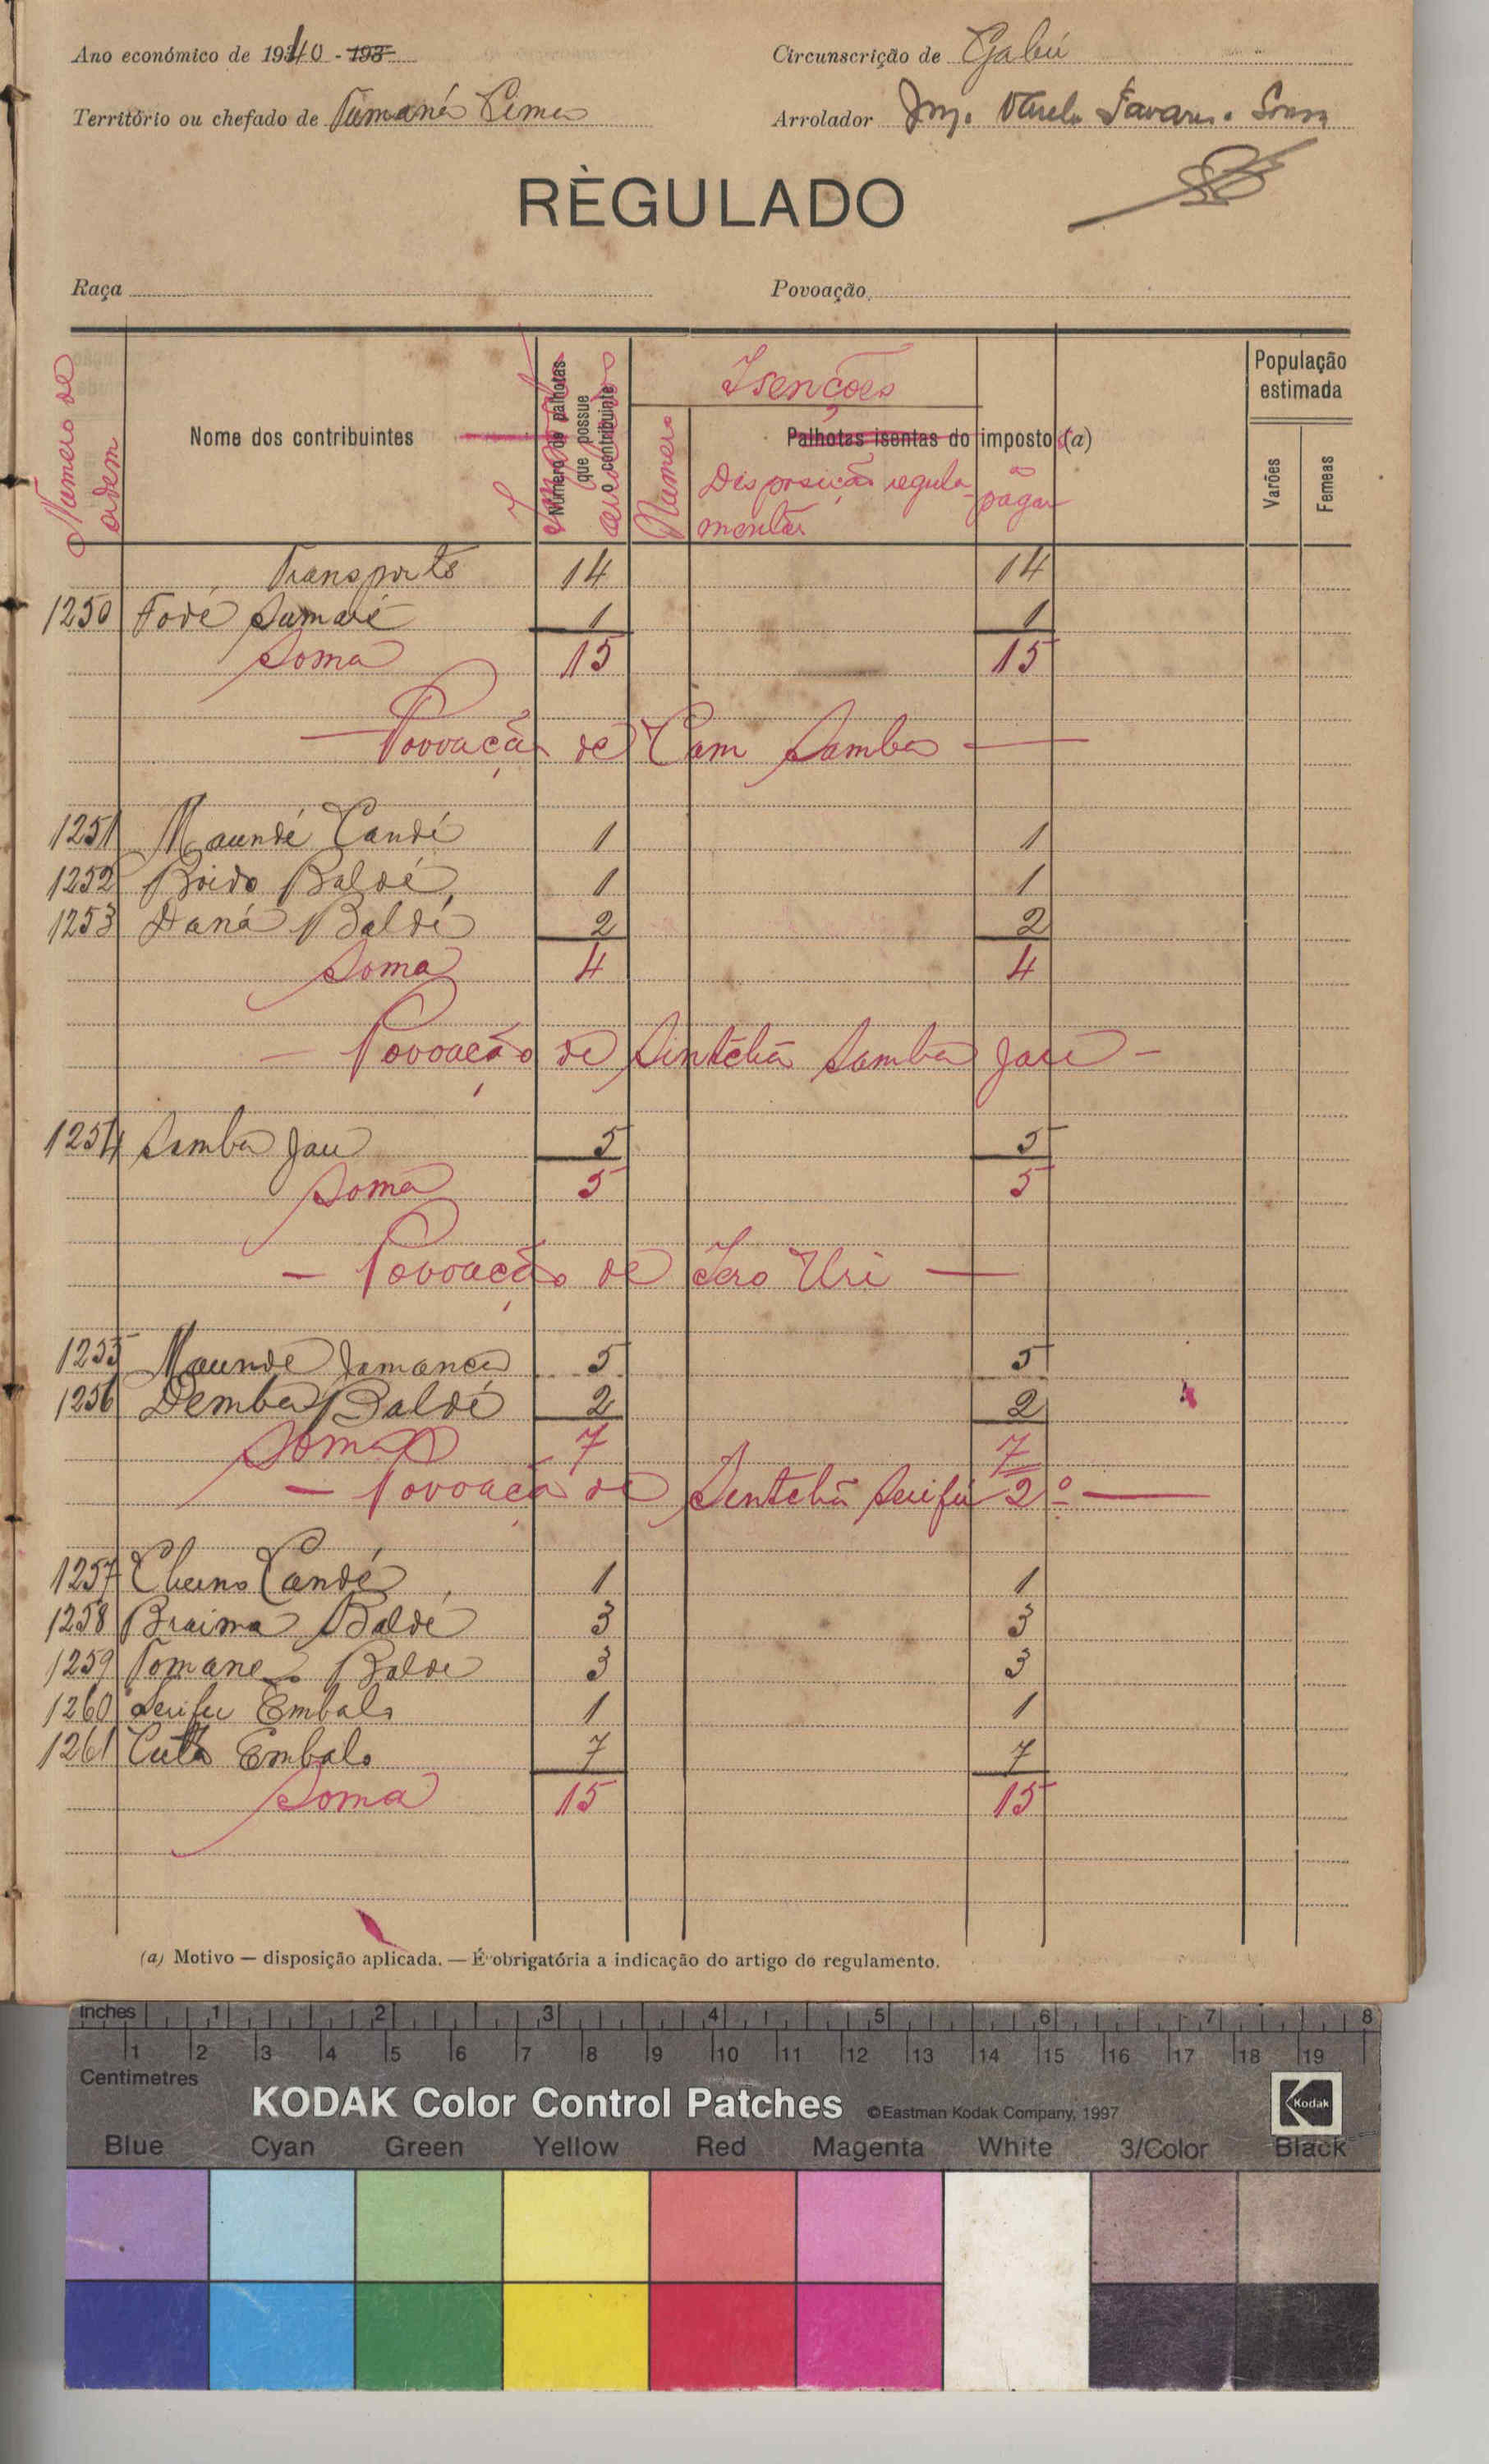 Ano económico de 1940 - 193
Circunscrição de Gabú
Território ou chefado de Tumaná Cima
Arrolador Tavares Sousa
RÈGULADO
Raça
Povoação
Numero de ordem
Nome dos contribuintes
Número de palhotas que possue o contribuinte
Isenções
Numero
Palhotas isentas do imposto (a)
Disposição regula-
mentar
a pagar
População estimada
Varões
Femeas
Transporte 14 14
1250 Fodé Sumaré 1 1
Soma 15 15
— Povoação de Cam Samba —
1251 Maundé Candé 1 1
1252 Boido Baldé 1 1
1253 Daná Baldé 2 2
Soma 4 4
— Povoação de Sintchã Samba Jau —
1254 Samba Jau 5 5
Soma 5 5
— Povoação de Iero Uri —
1255 Maunde Jamanca 5 5
1256 Demba Baldé 2 2
Soma 7 7
— Povoação de Sentchã Serifu 2º —
1257 Cherno Candé 1 1
1258 Braima Baldé 3 3
1259 Tomane Balde 3 3
1260 Serifu Embalo 1 1
1261 Embalo 7 7
Soma 15 15
(a) Motivo — disposição aplicada. — É obrigatória a indicação do artigo do regulamento.
Inches 1 2 3 4 5 6 7 8
1 2 3 4 5 6 7 8 9 10 11 12 13 14 15 16 17 18 19
Centimetres
KODAK Color Control Patches ©Eastman Kodak Company, 1997 Kodak
Blue Cyan Green Yellow Red Magenta White 3/Color Black